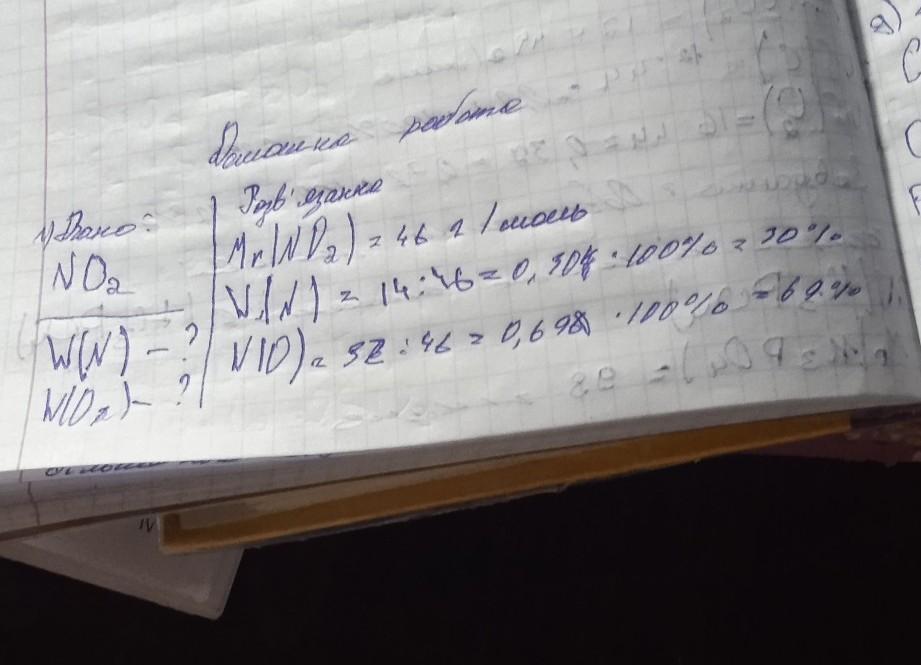 Домашня робота
1) Дано:
NO₂
W(N) – ?
W(O₂) – ?
Розв'язання
Mr(NO₂) = 46 г/моль
W(N) = 14 : 46 = 0,304 · 100% = 30%
W(O) = 32 : 46 = 0,69 · 100% = 69%